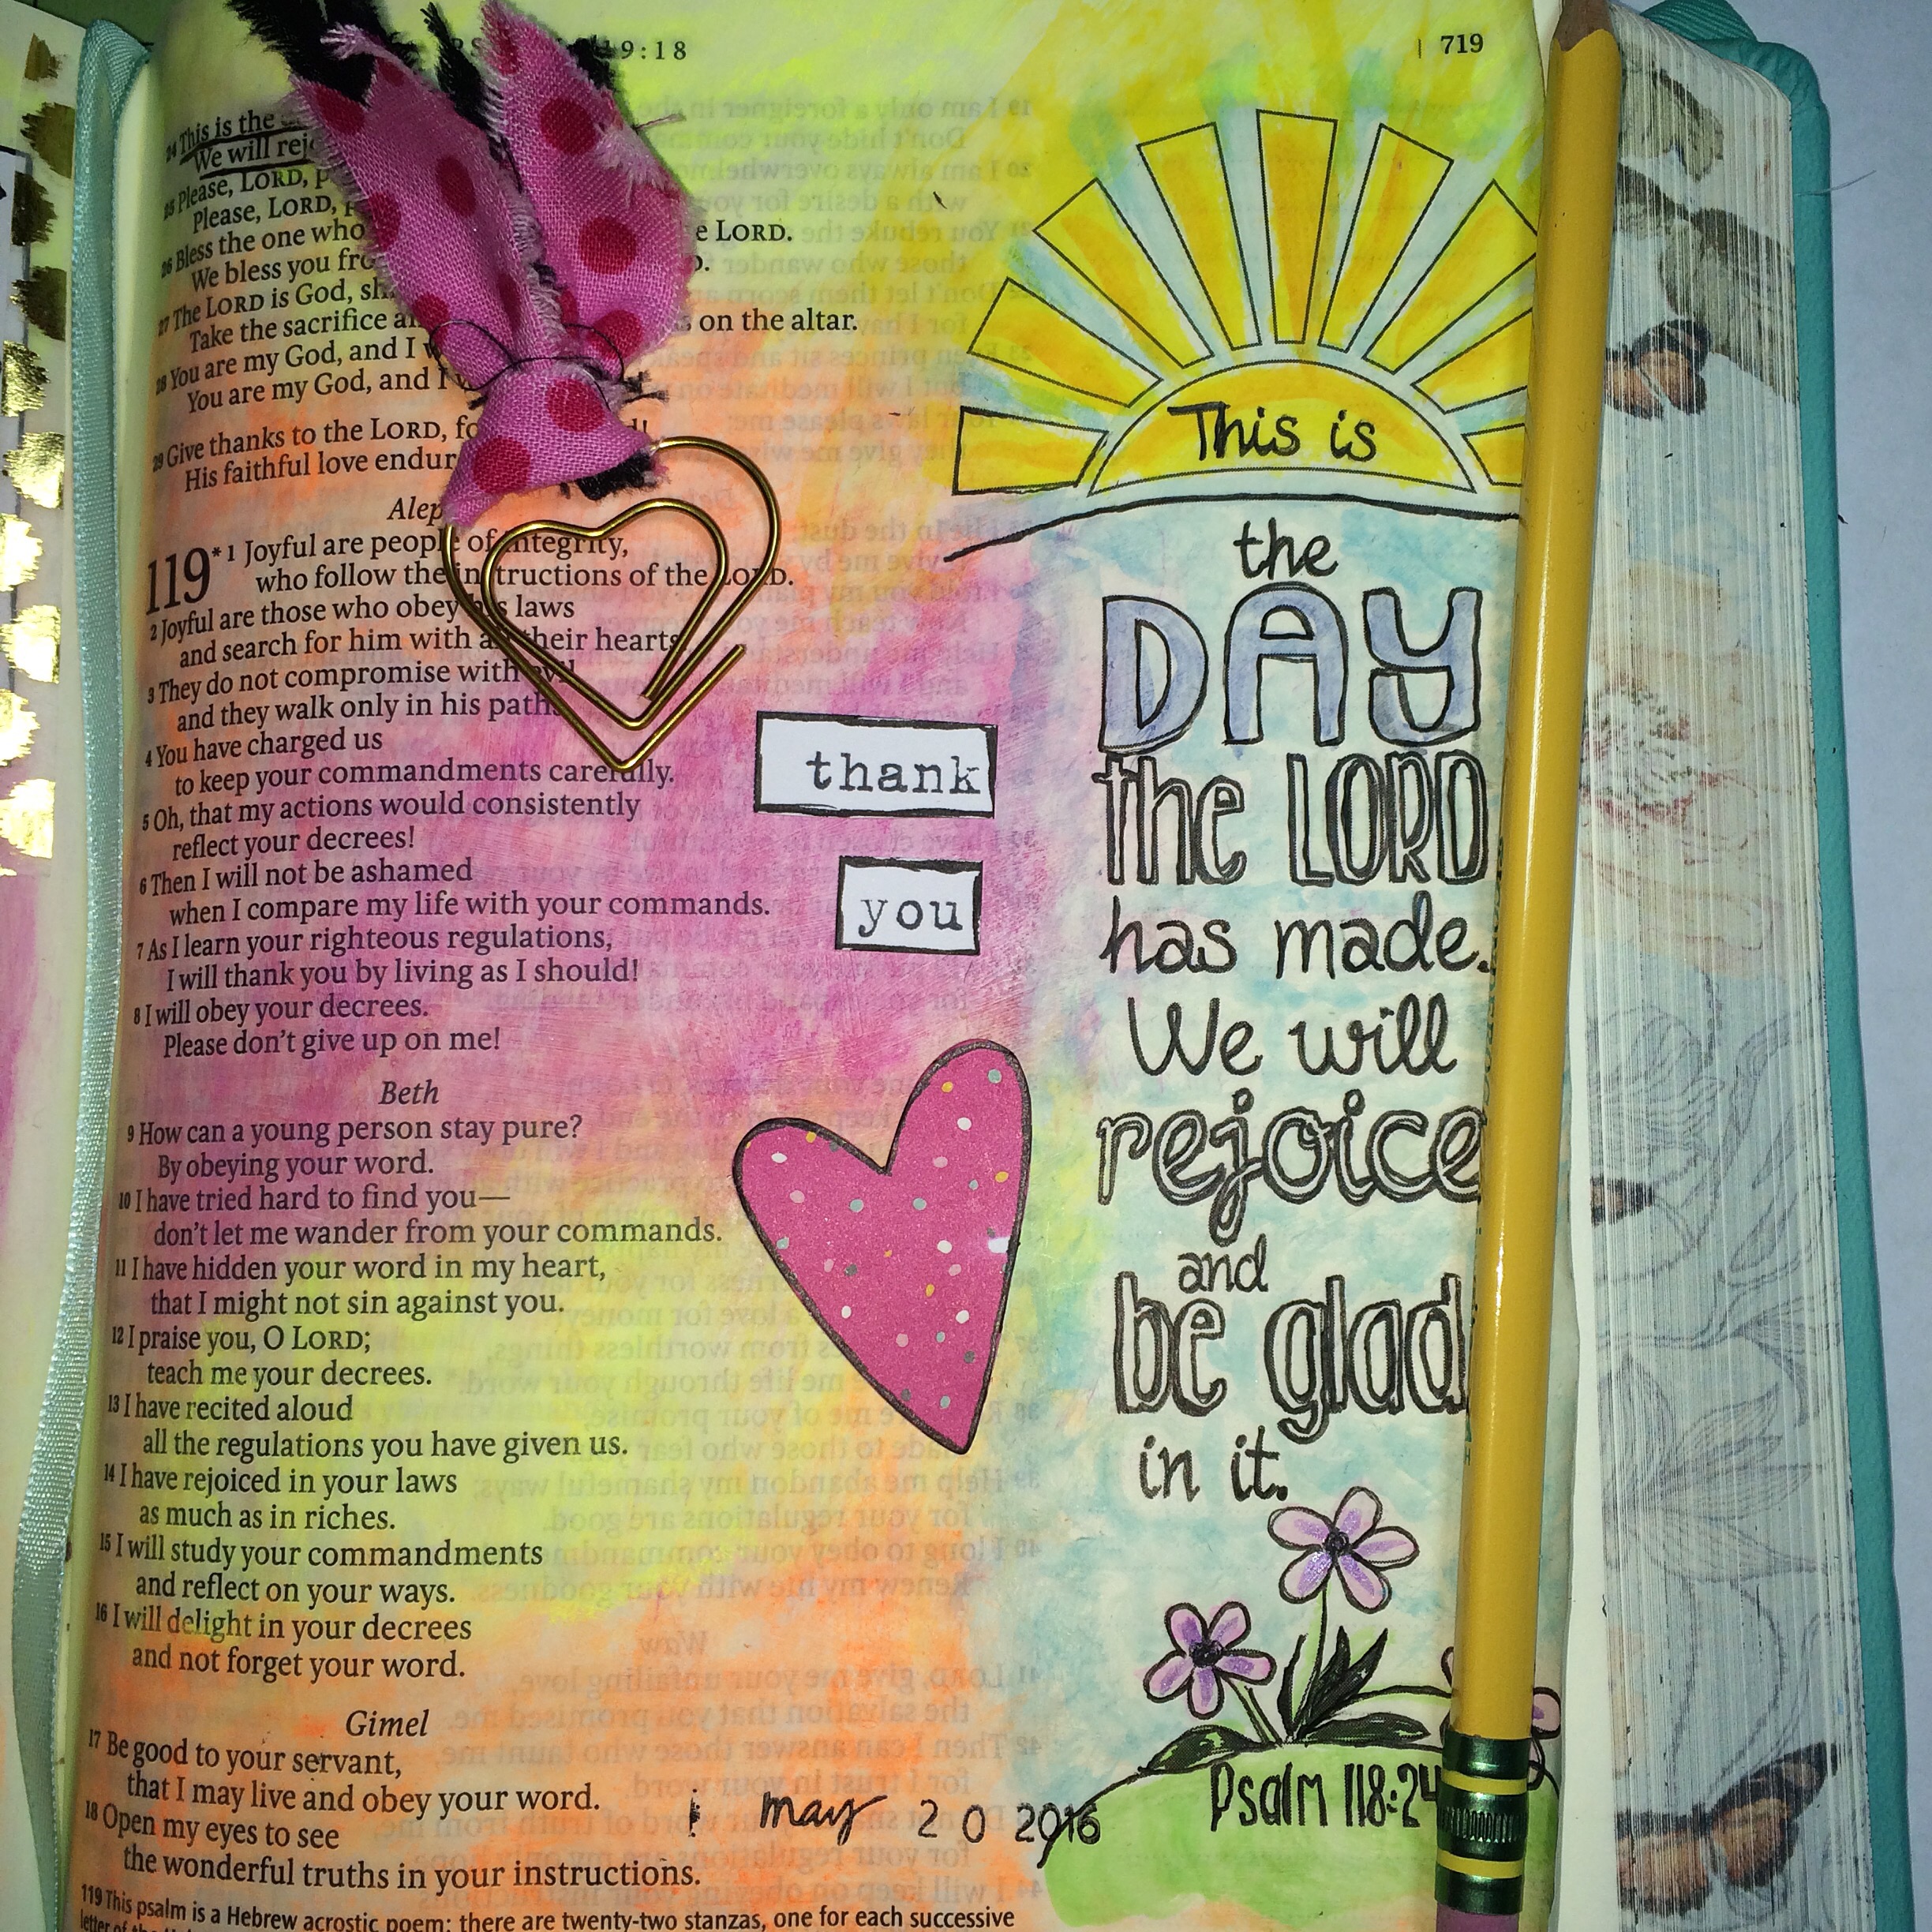 9:18
719
24 This is the
We will rejo
25 Please, LORD, p
Please, LORD,
26 Bless the one who e LORD.
We bless you fro
27 The LORD is God, sh
Take the sacrifice an on the altar.
28 You are my God, and I w
You are my God, and I
29 Give thanks to the LORD, fo
His faithful love endur
Alep
119 * 1 Joyful are people of integrity,
who follow the instructions of the LORD.
2 Joyful are those who obey his laws
and search for him with all their hearts.
3 They do not compromise with evil,
and they walk only in his paths.
4 You have charged us
to keep your commandments carefully.
5 Oh, that my actions would consistently
reflect your decrees!
6 Then I will not be ashamed
when I compare my life with your commands.
7 As I learn your righteous regulations,
I will thank you by living as I should!
8 I will obey your decrees.
Please don't give up on me!
Beth
9 How can a young person stay pure?
By obeying your word.
10 I have tried hard to find you—
don't let me wander from your commands.
11 I have hidden your word in my heart,
that I might not sin against you.
12 I praise you, O LORD;
teach me your decrees.
13 I have recited aloud
all the regulations you have given us.
14 I have rejoiced in your laws
as much as in riches.
15 I will study your commandments
and reflect on your ways.
16 I will delight in your decrees
and not forget your word.
Gimel
17 Be good to your servant,
that I may live and obey your word.
18 Open my eyes to see
the wonderful truths in your instructions.
119 This psalm is a Hebrew acrostic poem; there are twenty-two stanzas, one for each successive
letter of the
thank
you
may 20 2016
This is
the
DAY
the LORD
has made.
We will
rejoice
and
be glad
in it.
Psalm 118:24